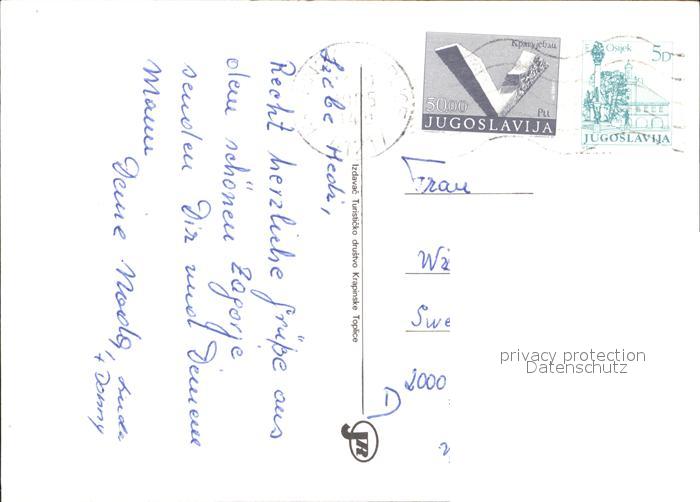 Liebe Hedi,
Recht herzliche Grüße aus
dem schönen Zagorje
senden Dir und Deinem
Mann
Deine Nada,
+
Izdavač Turističko društvo Krapinske Toplice
50.00
JUGOSLAVIJA
Osijek
5D
JUGOSLAVIJA
Frau
Swe
2000
privacy protection
Datenschutz